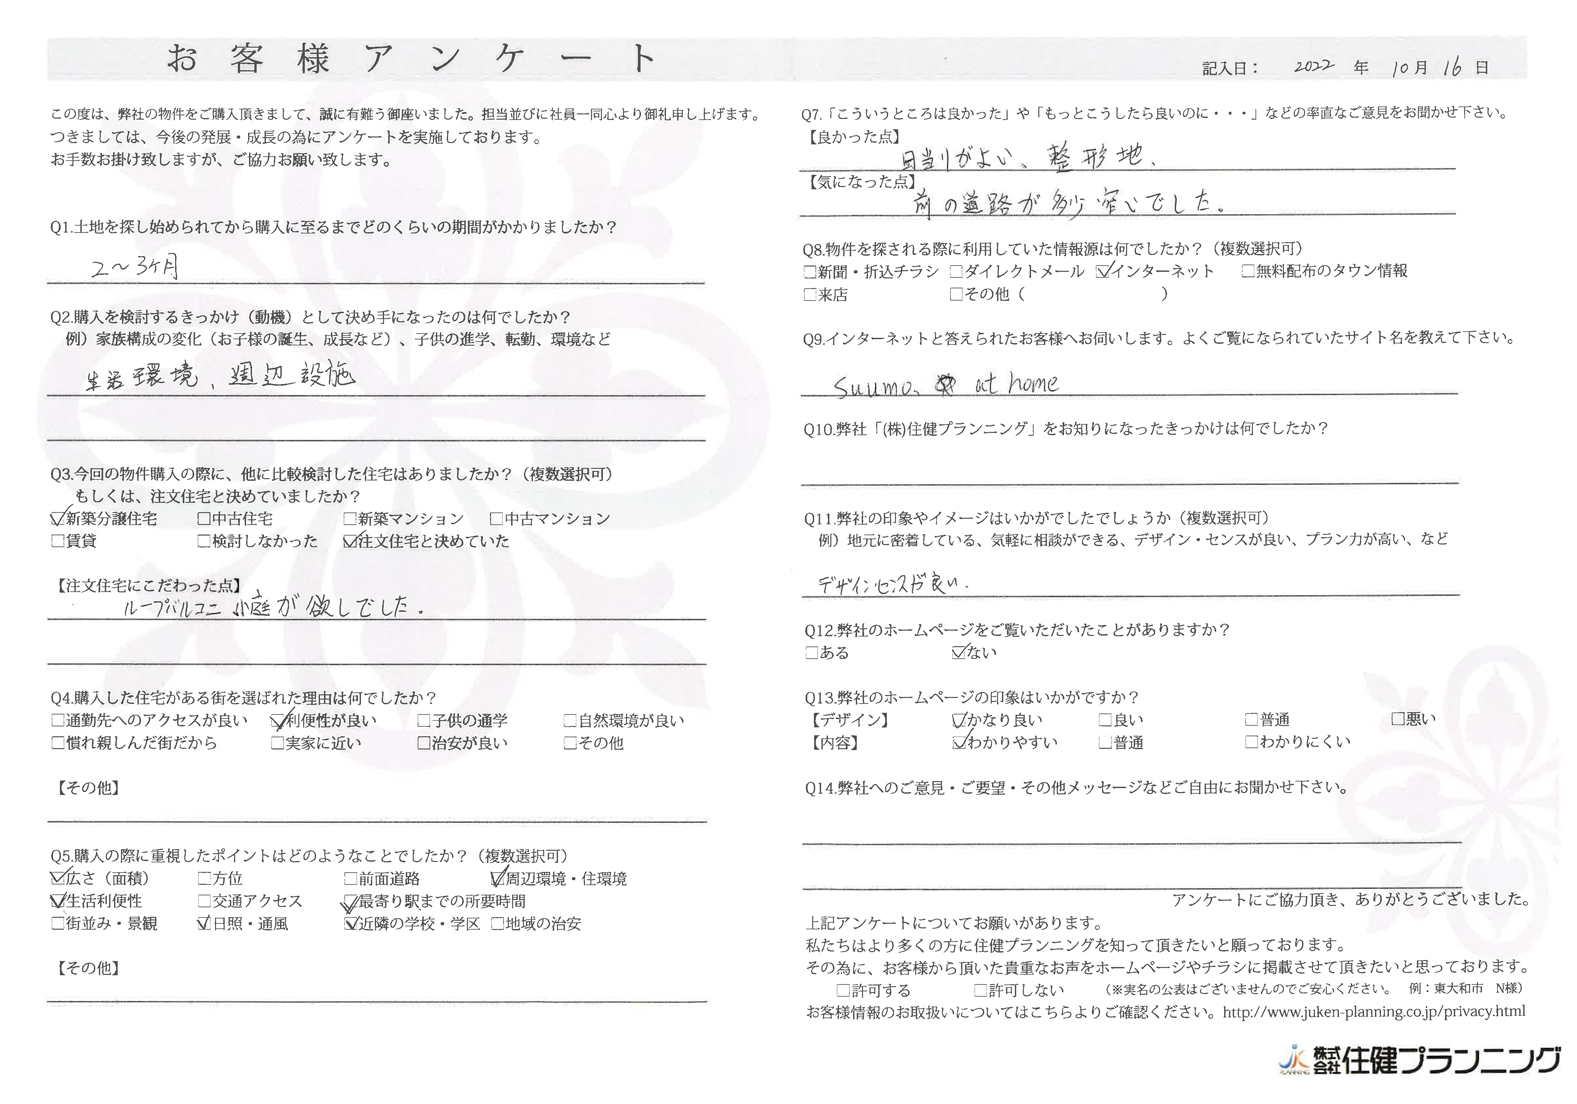 お客様アンケート
記入日： 2022 年 10月 16 日
この度は、弊社の物件をご購入頂きまして、誠に有難う御座いました。担当並びに社員一同心より御礼申し上げます。
つきましては、今後の発展・成長の為にアンケートを実施しております。
お手数お掛け致しますが、ご協力お願い致します。
Q1.土地を探し始められてから購入に至るまでどのくらいの期間がかかりましたか？
2〜3ヶ月
Q2.購入を検討するきっかけ（動機）として決め手になったのは何でしたか？
例）家族構成の変化（お子様の誕生、成長など）、子供の進学、転勤、環境など
生活環境、周辺設施
Q3.今回の物件購入の際に、他に比較検討した住宅はありましたか？（複数選択可）
もしくは、注文住宅と決めていましたか？
☑新築分譲住宅 □中古住宅 □新築マンション □中古マンション
□賃貸 □検討しなかった ☑注文住宅と決めていた
【注文住宅にこだわった点】
ループバルコニ 小庭が欲しでした.
Q4.購入した住宅がある街を選ばれた理由は何でしたか？
□通勤先へのアクセスが良い ☑利便性が良い □子供の通学 □自然環境が良い
□慣れ親しんだ街だから □実家に近い □治安が良い □その他
【その他】
Q5.購入の際に重視したポイントはどのようなことでしたか？（複数選択可）
☑広さ（面積） □方位 □前面道路 ☑周辺環境・住環境
☑生活利便性 □交通アクセス ☑最寄り駅までの所要時間
□街並み・景観 ☑日照・通風 ☑近隣の学校・学区 □地域の治安
【その他】
Q7.「こういうところは良かった」や「もっとこうしたら良いのに・・・」などの率直なご意見をお聞かせ下さい。
【良かった点】
日当りがよい、整形地、
【気になった点】
前の道路が多少 でした。
Q8.物件を探される際に利用していた情報源は何でしたか？（複数選択可）
□新聞・折込チラシ □ダイレクトメール ☑インターネット □無料配布のタウン情報
□来店 □その他（ ）
Q9.インターネットと答えられたお客様へお伺いします。よくご覧になられていたサイト名を教えて下さい。
suumo、 at home
Q10.弊社「(株)住健プランニング」をお知りになったきっかけは何でしたか？
Q11.弊社の印象やイメージはいかがでしたでしょうか（複数選択可）
例）地元に密着している、気軽に相談ができる、デザイン・センスが良い、プラン力が高い、など
デザインセンスが良い.
Q12.弊社のホームページをご覧いただいたことがありますか？
□ある ☑ない
Q13.弊社のホームページの印象はいかがですか？
【デザイン】 ☑かなり良い □良い □普通 □悪い
【内容】 ☑わかりやすい □普通 □わかりにくい
Q14.弊社へのご意見・ご要望・その他メッセージなどご自由にお聞かせ下さい。
アンケートにご協力頂き、ありがとうございました。
上記アンケートについてお願いがあります。
私たちはより多くの方に住健プランニングを知って頂きたいと願っております。
その為に、お客様から頂いた貴重なお声をホームページやチラシに掲載させて頂きたいと思っております。
□許可する □許可しない （※実名の公表はございませんのでご安心ください。 例：東大和市 N様）
お客様情報のお取扱いについてはこちらよりご確認ください。http://www.juken-planning.co.jp/privacy.html
JK PLANNING 株式会社住健プランニング